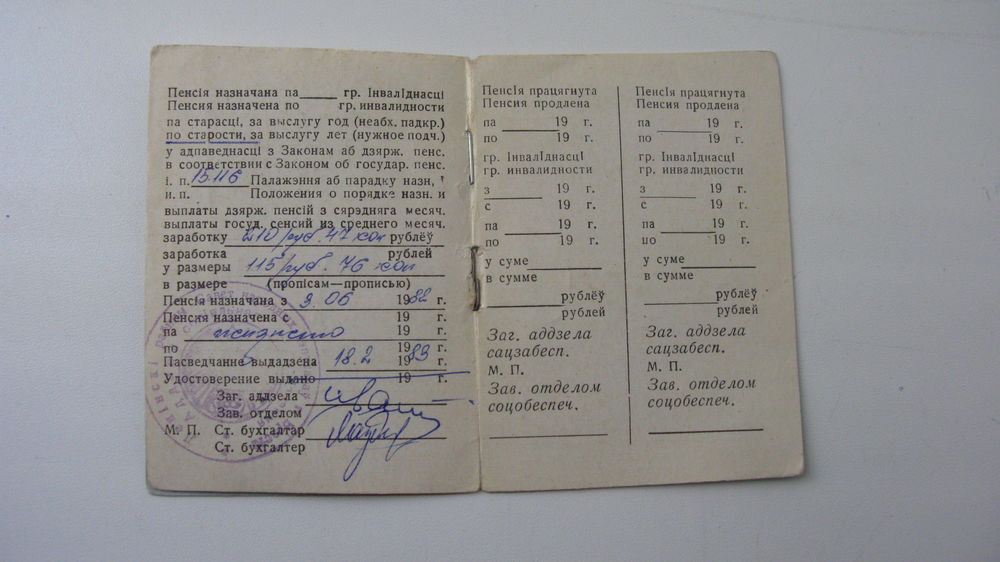 Пенсія назначана па______ гр. Інваліднасці
Пенсия назначена по гр. инвалидности
па старасці, за выслугу год (неабх. падкр.)
по старости, за выслугу лет (нужное подч.)
у адпаведнасці з Законам аб дзярж. пенс.
в соответствии с Законом об государ. пенс.
і. п. 15116 Палажэння аб парадку назн, і
и. п. Положения о порядке назн. и
выплаты дзярж. пенсій з сярэдняга месяч.
выплаты госуд. сенсий из среднего месяч.
заработку 210 руб. 47 коп рублёў
заработка рублей
у размеры 115 руб. 76 коп
в размере (пропісам—прописью)
Пенсія назначана з 3 06 1982 г.
Пенсия назначена с 19 г.
па пожизненно 19 г.
по 19 г.
Пасведчание выдадзена 18.2 1983 г.
Удостоверение выдано 19 г.
Заг. аддзела
Зав. отделом
М. П. Ст. бухгалтар
Ст. бухгалтер
Пенсія працягнута
Пенсия продлена
па ______ 19 г.
по 19 г.
гр. Інваліднасці
гр. инвалидности
з ______ 19 г.
с 19 г.
па ______ 19 г.
по 19 г.
у суме ______
в сумме
______ рублёў
рублей
Заг. аддзела
сацзабесп.
М. П.
Зав. отделом
соцобеспеч.
Пенсія працягнута
Пенсия продлена
па ______ 19 г.
по 19 г.
гр. Інваліднасці
гр. инвалидности
з ______ 19 г.
с 19 г.
па ______ 19 г.
по 19 г.
у суме ______
в сумме
______ рублёў
рублей
Заг. аддзела
сацзабесп.
М. П.
Зав. отделом
соцобеспеч.